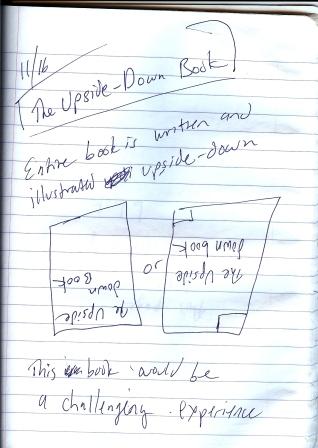 11/16
The Upside-Down Book
Entire book is written and
illustrated upside-down
The Upside
down
Book
or
The Upside
down book
This book would be
a challenging experience